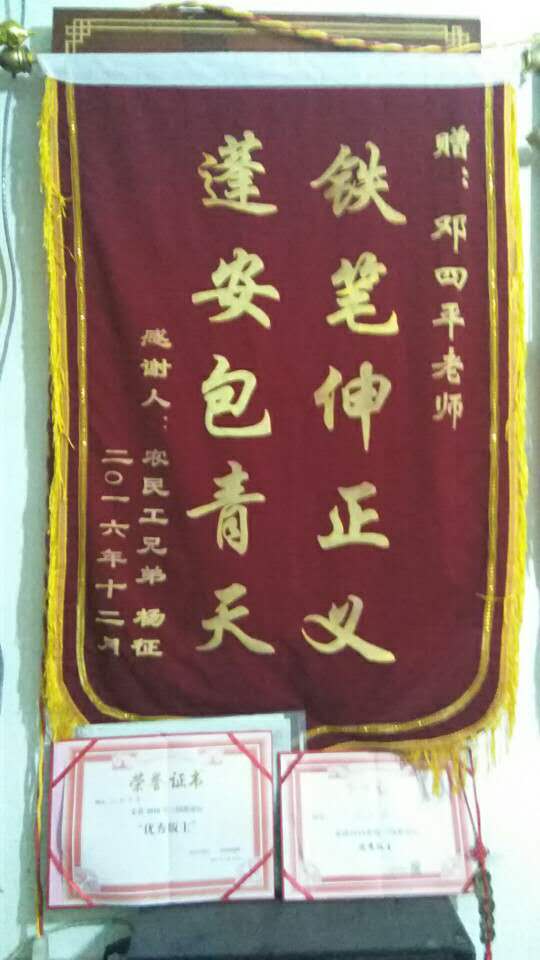 赠：邓四平老师
铁笔伸正义
蓬安包青天
感谢人：农民工兄弟 杨征
二〇一六年十二月
荣誉证书
"优秀版主"
优秀版主